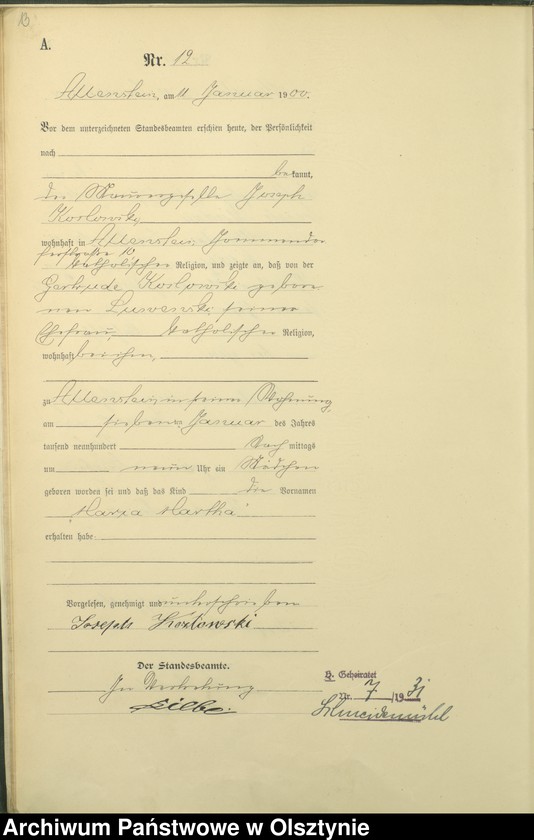 13
A.
Nr. 12
Allenstein, am 11 Januar 1900.
Vor dem unterzeichneten Standesbeamten erschien heute, der Persönlichkeit
nach
bekannt,
der Maurergeselle Joseph
Koslowski,
wohnhaft in Allenstein,
10
katholischer Religion, und zeigte an, daß von der
Gertrude Koslowski gebore-
nen seiner
Ehefrau, katholischer Religion,
wohnhaft bei ihm,
zu Allenstein in seiner Wohnung,
am siebenten Januar des Jahres
tausend neunhundert Nachmittags
um neun Uhr ein Mädchen
geboren worden sei und daß das Kind die Vornamen
Maria Martha
erhalten habe
Vorgelesen, genehmigt und unterschrieben
Joseph Kozlowski
Der Standesbeamte.
In Vertretung
H. Geheiratet
Nr. 7 /1931
Schneidemühl
Archiwum Państwowe w Olsztynie